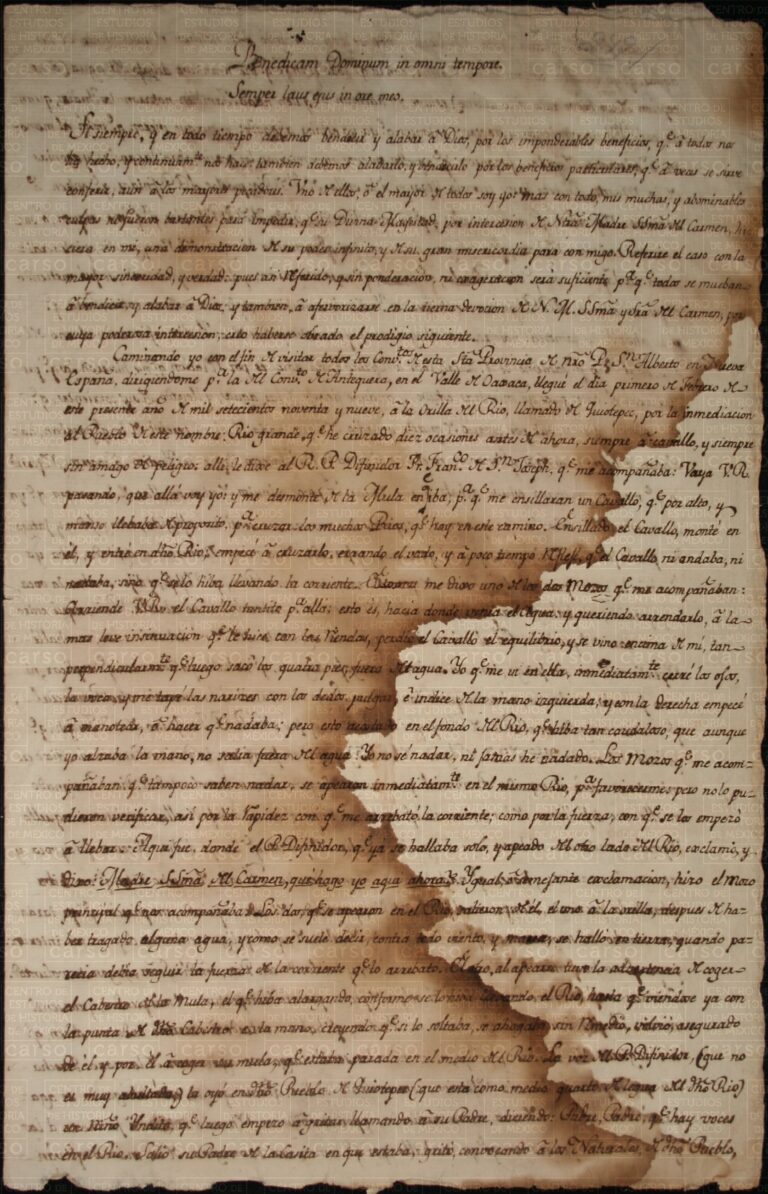 Benedicam Dominum in omni tempore.
Semper laus ejus in ore meo.
Si siempre, y en todo tiempo debemos bendecir y alabar â Dios, por los imponderables beneficios, q.e â todos nos
ha hecho, y continuam.te nos hace; tambien debemos alabarlo, y bendecirlo por los beneficios particulares, q.e â veces se sirve
conferir, aun â los mayores pecadores. Vno de ellos, ô el mayor de todos soy yo: mas con todo, mis muchas, y abominables
culpas no fueron bastantes para impedir, q.e su Divina Magestad, por intercesion de Ntra. Madre SSma del Carmen, hi
ciera en mi, una demonstracion de su poder infinito, y de su gran misericordia para con migo. Referire el caso con la
mayor sinceridad, y verdad: pues asi referido, y sin ponderacion, ni exageracion será suficiente p.a q.e todos se muevan
â bendecir, y alabar â Dios; y tambien, â afervorizarse en la tierna devocion de N. M. SSma y Sra del Carmen, por
cuya poderosa intercesion, creo haberse obrado el prodigio siguiente.
Caminando yo con el fin de visitar todos los Conv.tos de esta Sta Provincia de Nro P. S.n Alberto en Nueva
España, dirigiendome p.a la del Conv.to de Antequera, en el Valle de Oaxaca, llegui el dia primero de Febrero de
este presente año de mil setecientos noventa y nueve, â la Orilla del Rio, llamado de Quiotepec, por la inmediacion
al Pueblo de este nombre: Rio grande, q.e he cruzado diez ocasiones antes de ahora, siempre â cavallo, y siempre
sin amago de peligro: alli, le dixe al R. P. Difinidor Fr. Fran.co de S.n Joseph, q.e me acompañaba: Vaya V. R.
pasando, que allá voy yo: y me desmonté de la Mula en q.e iba; p.a q.e me ensillaran un Cavallo, q.e por alto, y
manso llebaba de proposito, p.a cruzar los muchos Rios, q.e hay en este camino. Ensillado el Cavallo, monté en
él, y entré en dho Rio; empecé â cruzarlo, errando el vado, y â poco tiempo reflexé, q.e el Cavallo ni andaba, ni
nadaba, sino q.e selo hiba llevando la corriente. Entonces me dixo uno de los dos Mozos q.e me acompañaban:
V. R. el Cavallo tantito p.a alla; esto es, hacia donde venia el Agua; y queriendo arrendarlo, â la
mas leve insinuacion q.e le hice, con las riendas, perdió el Cavallo el equilibrio, y se vino encima de mi, tan
perpendicularm.te q.e luego sacó los quatro pies fuera del agua. Yo q.e me vi en ella, inmediatam.te cerré los ojos,
la voca, y me tapé las narizes con los dedos, pulgar, é indice de la mano izquierda; y con la derecha empecé
â manotear, ô hacer q.e nadaba; pero esto en el fondo del Rio, q.e hiba tan caudaloso, que aunque
yo alzaba la mano, no salia fuera del agua. Yo no sé nadar, ni jamas he nadado. Los Mozos q.e me acom-
pañaban q.e tampoco saben nadar, se apearon inmediatam.te en el mismo Rio, p.a favorecerme; pero no lo pu-
dieron verificar, asi por la rapidez con q.e me arrebató la corriente; como por la fuerza, con q.e se los empezó
â llebar. Aqui fue, donde el P. Difinidor, q.e ya se hallaba solo, y apeado del otro lado del Rio, exclamó, y
dixo: Madre SSma del Carmen, que hago yo aqui ahora? Ygual, ô semejante exclamacion, hizo el Mozo
principal q.e nos acompañaba. Los dos, q.e se apearon en el Rio, salieron de él, el uno â la orilla, despues de ha-
ber tragado alguna agua, y como se suele decir, contra todo viento, y marea, se halló en tierra, quando pa-
recia debia seguir la fuerza de la corriente q.e lo arrebato. El otro, al apearse tuvo la advertencia de coger
el Cabestro de la Mula, el q.e hiba alargando, conforme se lo hiba llevando el Rio, hasta q.e viendose ya con
la punta de dho Cabestro en la mano, creyendo q.e si lo soltaba, se ahogaba sin remedio, volvió, asegurado
de él, y por él â coger su mula, q.e estaba parada en el medio del Rio. La voz del P. Difinidor, (que no
es muy abultada) la oyó en dho Pueblo de Quiotepec (que está como medio quarto de legua del dho Rio)
un Niño Yndito, q.e luego empezó â gritar, llamando â su Padre, diciendo: Padre, Padre, q.e hay voces
en el Rio. Salió su Padre de la Casita en que estaba, gritó, convocando â los Naturales de dho Pueblo,